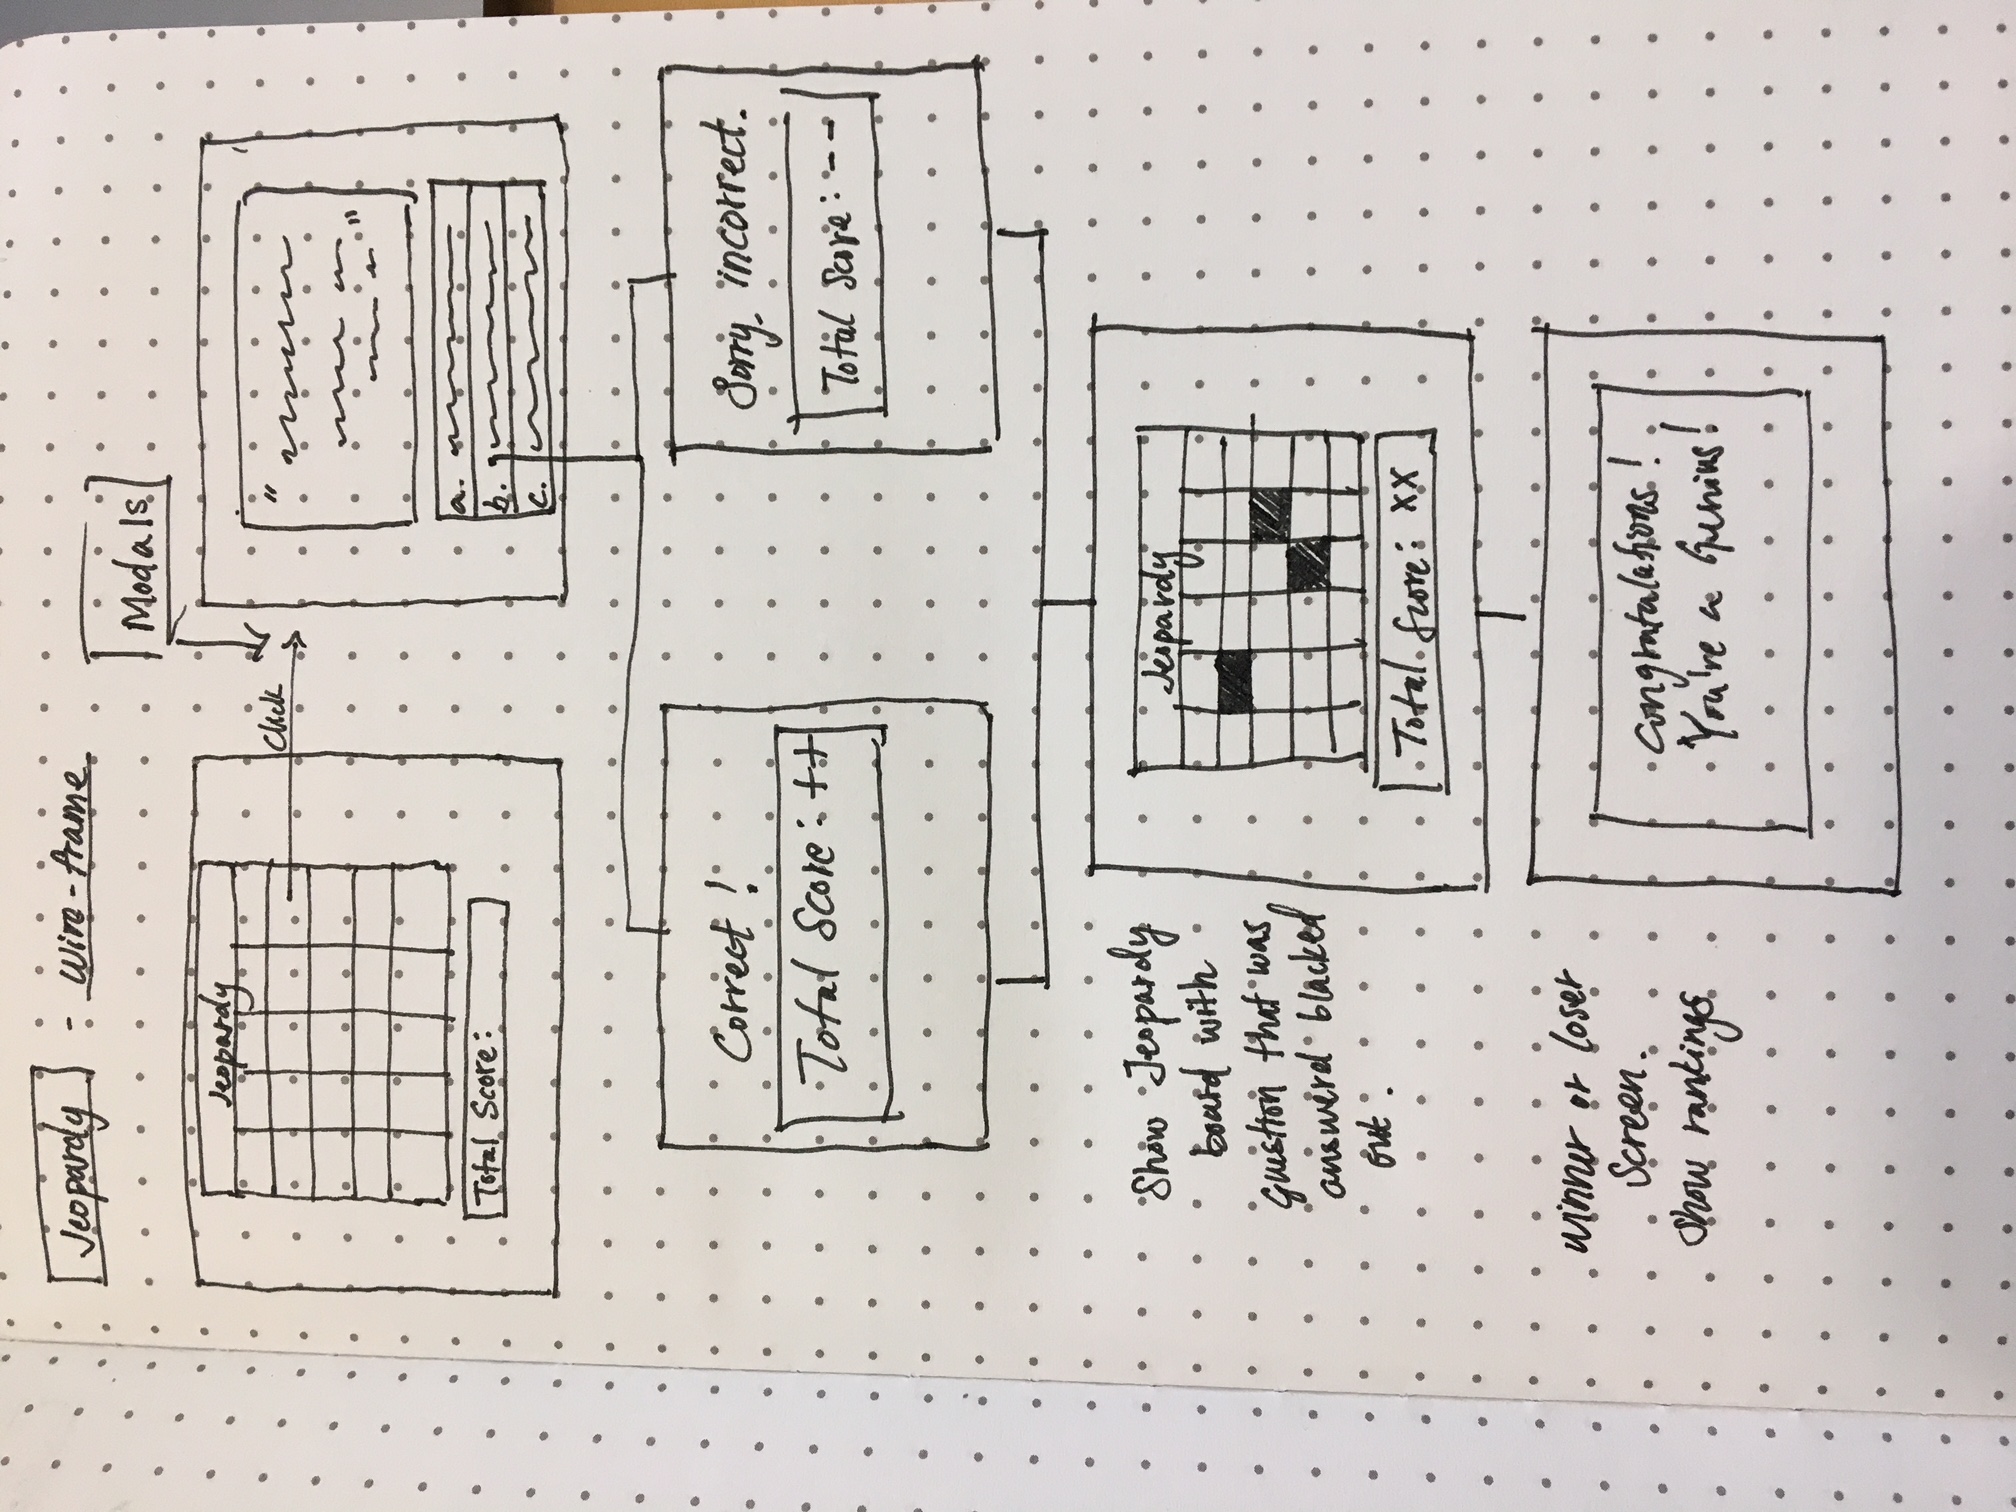 Jeopardy - Wire-frame
Modals
Jeopardy
Click
Total Score:
"
"
a.
b.
c.
Correct!
Total Score: ++
Sorry, incorrect.
Total Score: --
Show Jeopardy
board with
question that was
answerd blacked
out.
Jeopardy
Total Score: XX
Winner or loser
Screen.
Show rankings
Congratalations!
You're a Genius!